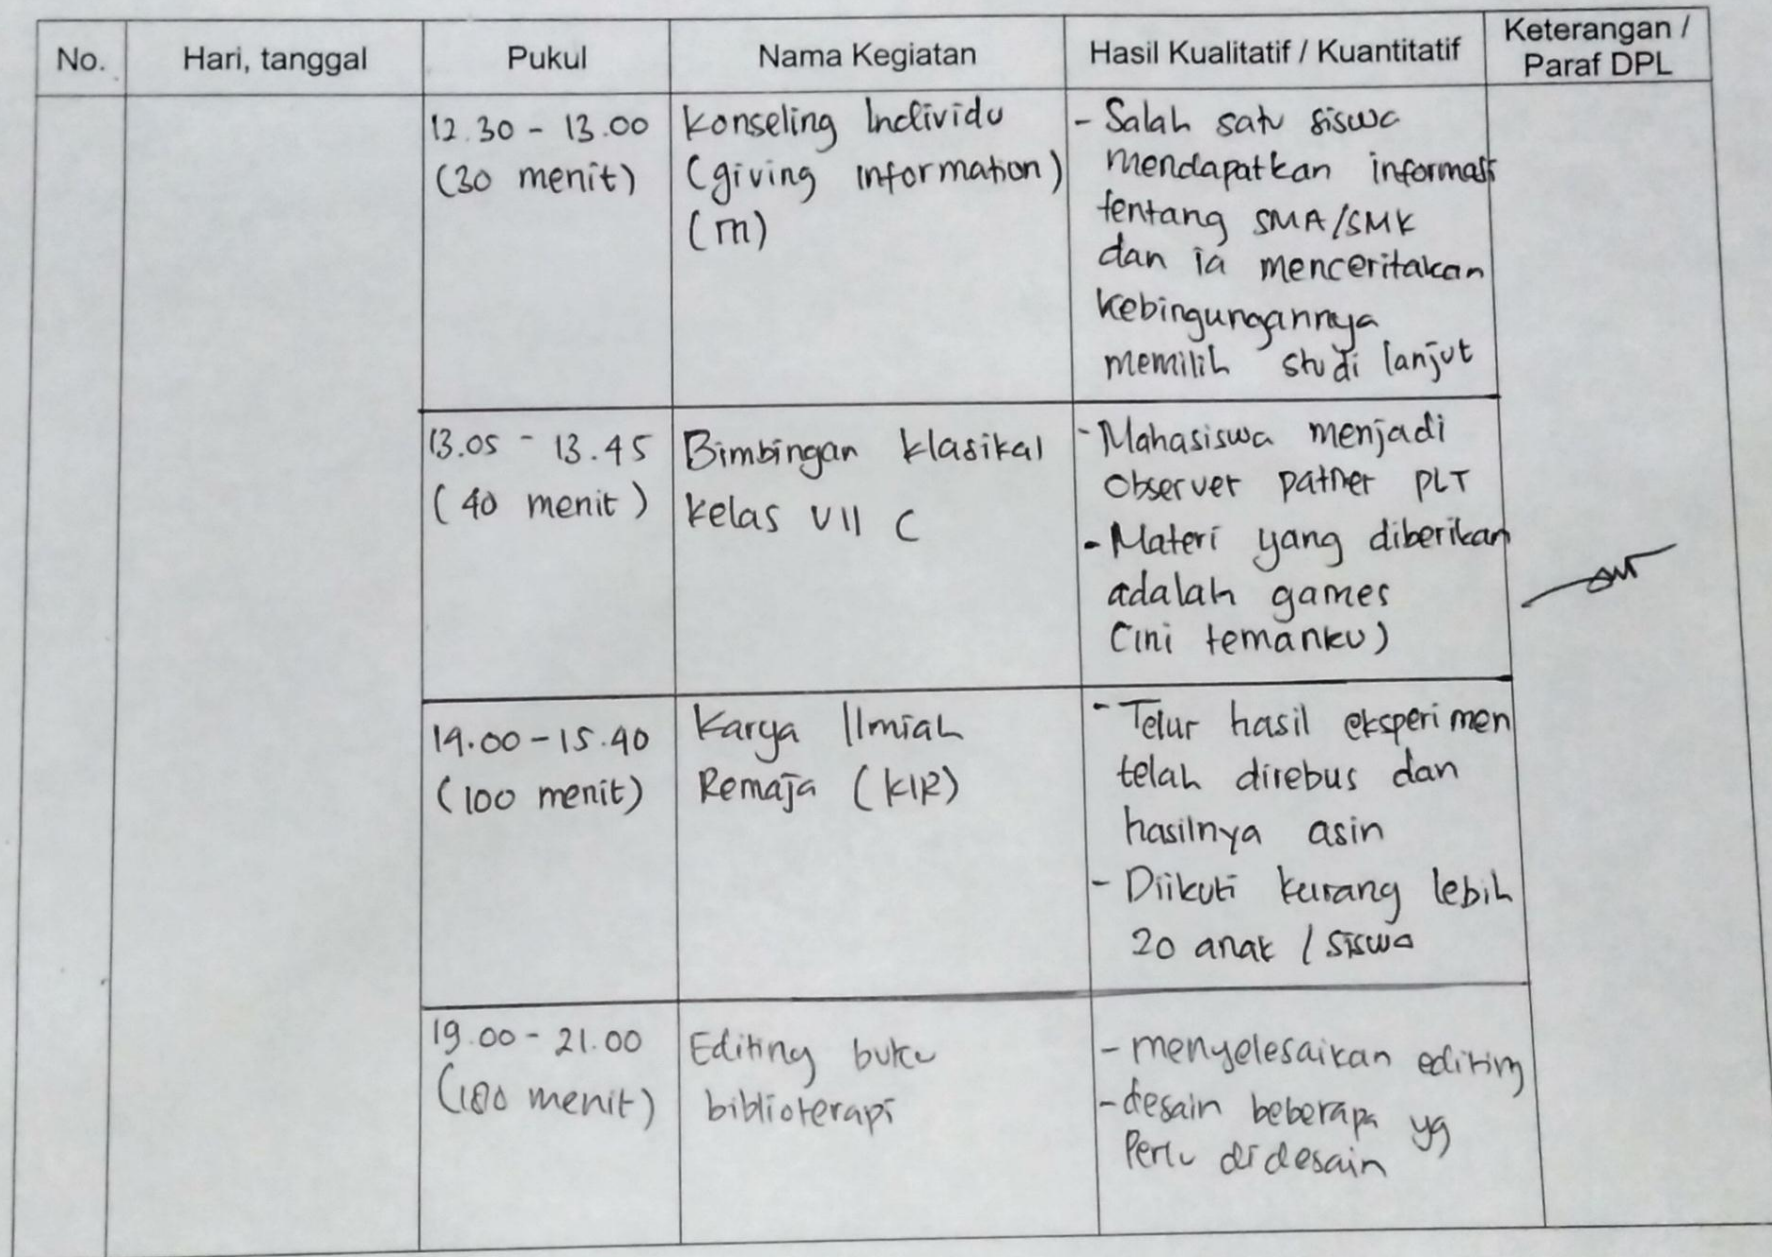 No.
Hari, tanggal
Pukul
Nama Kegiatan
Hasil Kualitatif / Kuantitatif
Keterangan /
Paraf DPL
12.30 - 13.00
(30 menit)
Konseling Individu
(giving information)
(m)
- Salah satu siswa
mendapatkan informasi
tentang SMA/SMK
dan ia menceritakan
kebingungannya
memilih studi lanjut
13.05 - 13.45
(40 menit)
Bimbingan klasikal
kelas VII C
- Mahasiswa menjadi
observer patner PLT
- Materi yang diberikan
adalah games
(ini temanku)
14.00 - 15.40
(100 menit)
Karya Ilmiah
Remaja (KIR)
- Telur hasil eksperimen
telah direbus dan
hasilnya asin
- Diikuti kurang lebih
20 anak / siswa
19.00 - 21.00
(180 menit)
Editing buku
biblioterapi
- menyelesaikan editing
- desain beberapa yg
perlu didesain